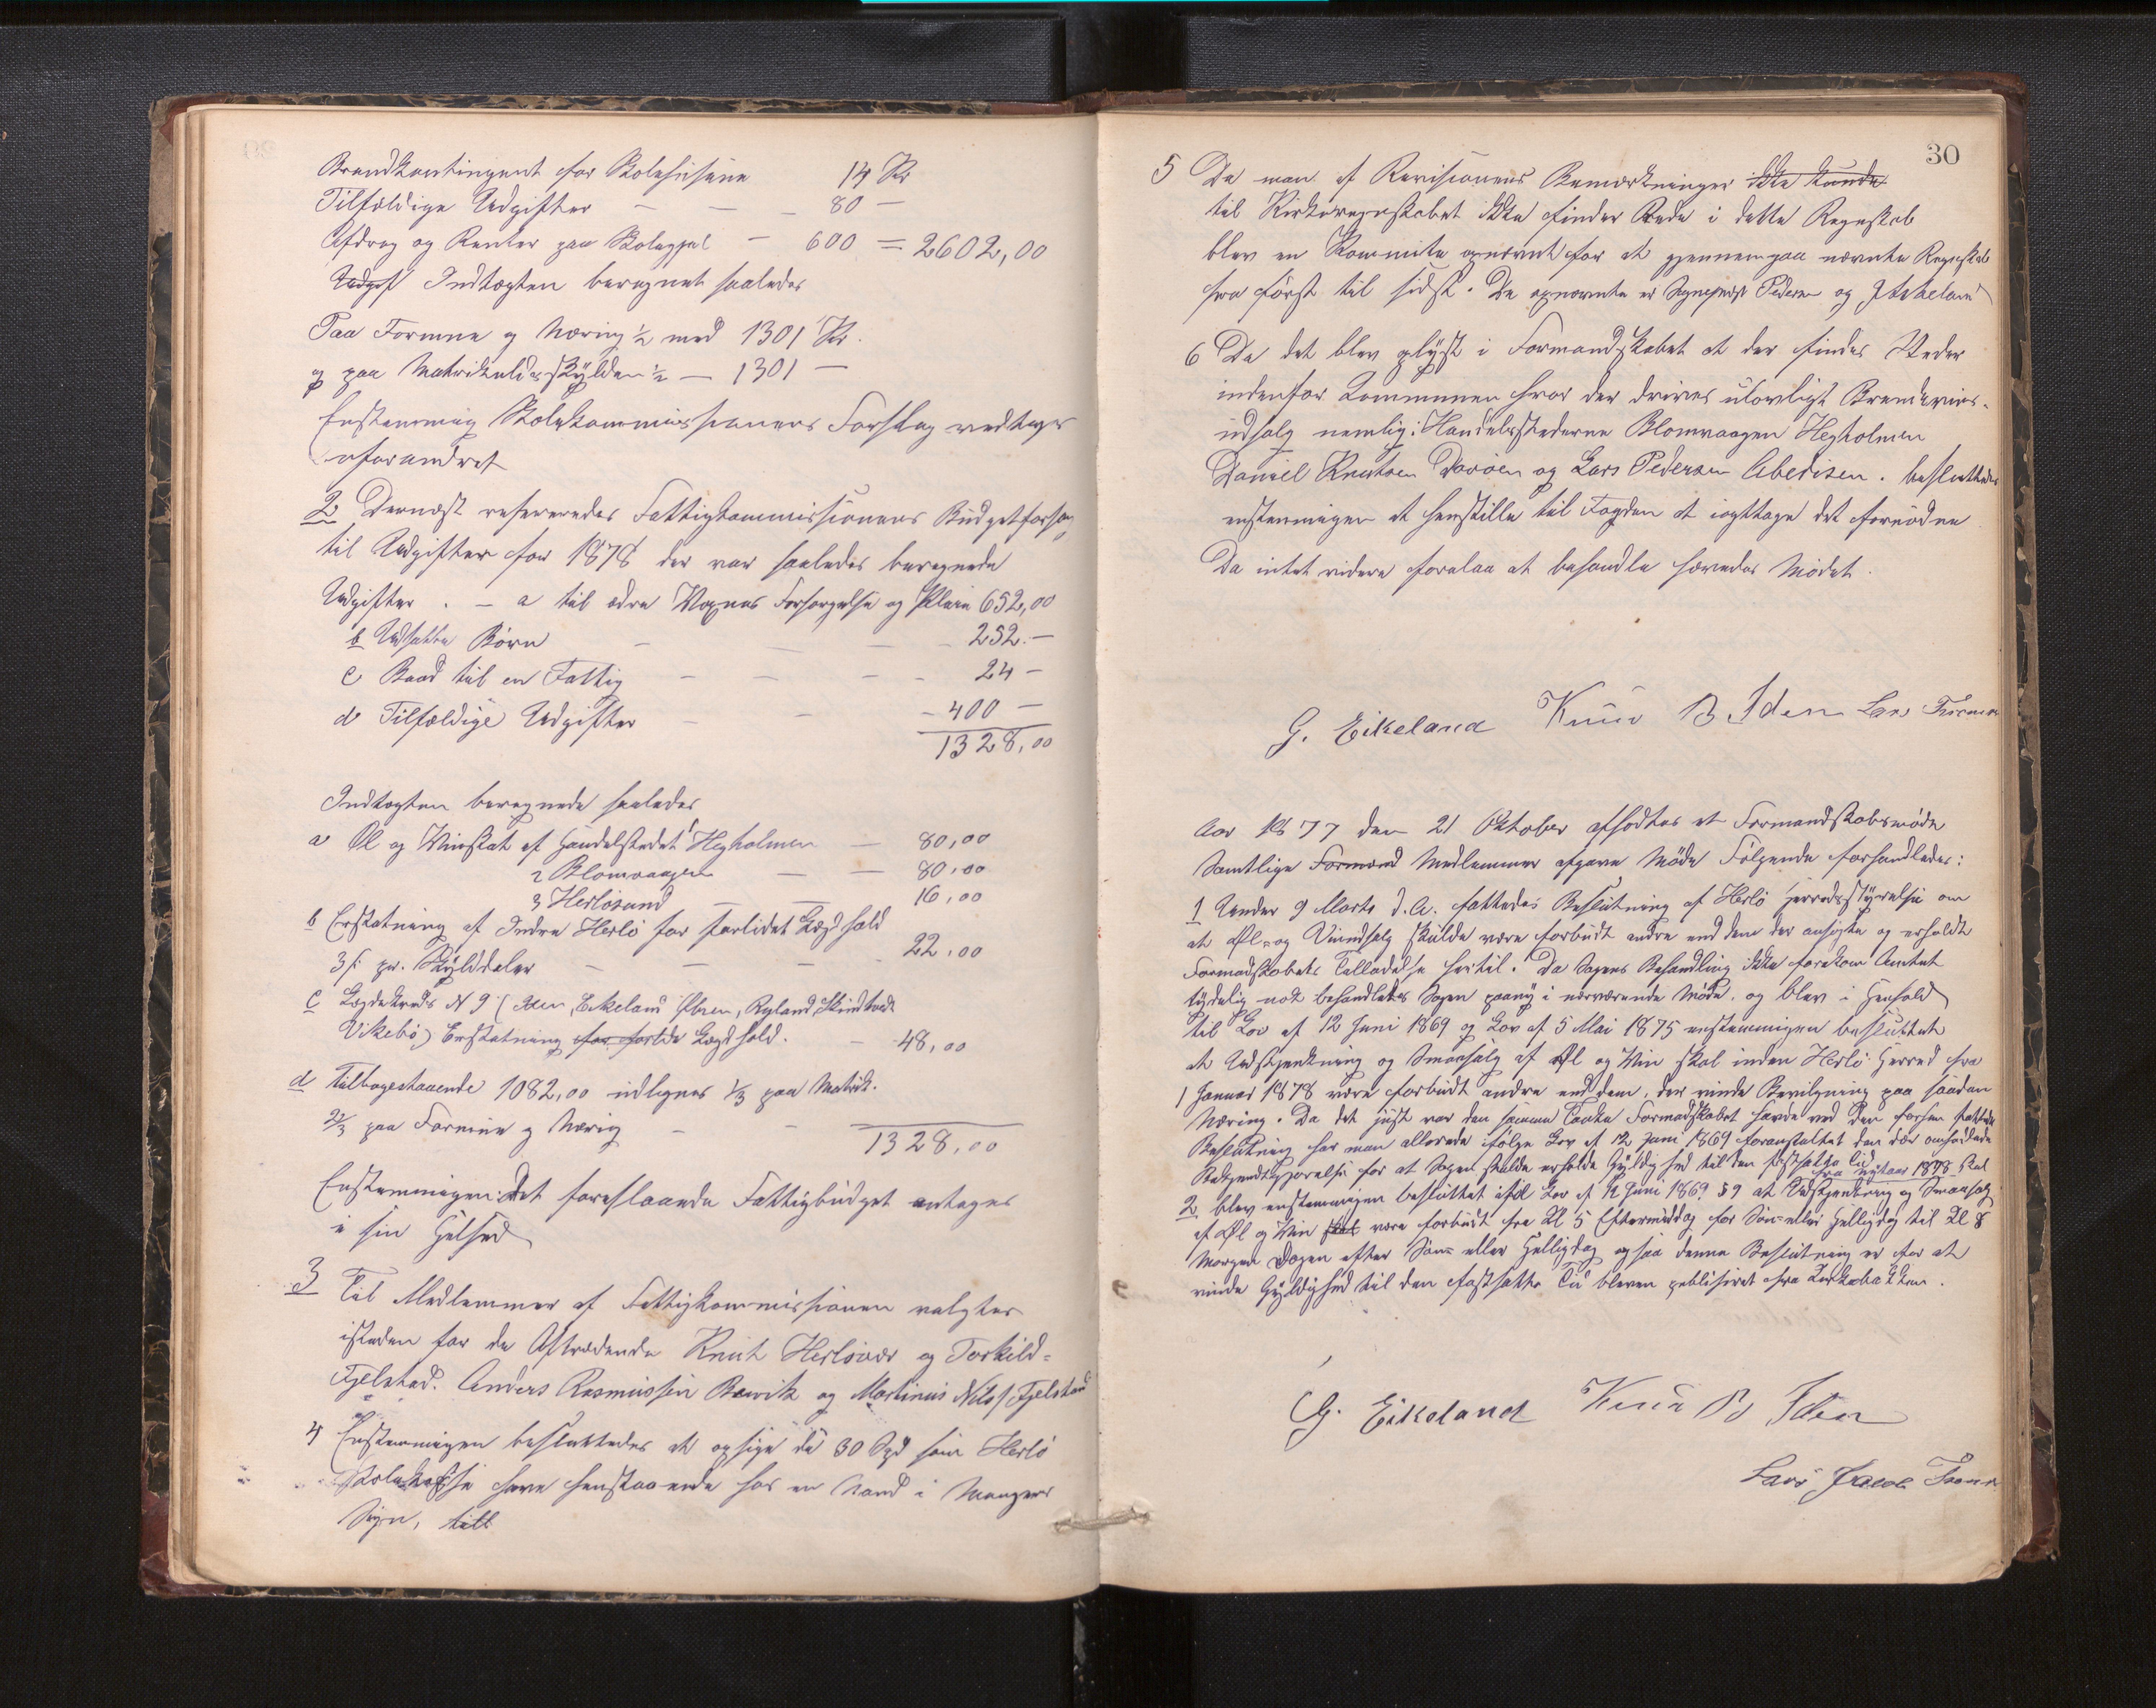 Brandkontingent for Skolehusene 14 Kr
Tilfældige Udgifter — — 80 —
Afdrag og Renter paa Skolegjæl — 600 = 2602,00
Udgif Indtægten beregnet saaledes
Paa Formue og Næring ½ med 1301 Kr.
og paa Matrikulskylden ½ — 1301 —
Enstemmig Skolekommissionens Forslag vedtages
uforandret
2 Dernæst refereredes Fattigkommissionens Budgetforslag
til Udgifter for 1878 der var saaledes beregnede
Udgifter . — a til ældre Vaxnes Forsørgelse og Pleie 652,00
b Udsatte Børn — — — 252.—
c Baad til en Fattig — — — 24 —
d Tilfældige Udgifter — — — 400 —
1328,00
Indtægten beregnede saaledes
a Øl og Vinskat af Handelstedet 1 Hegholmen — 80,00
2 Blomvaagen — — 80,00
3 Herløsund — — 16,00
b Erstatning af Indre Herlø for forlidet Lægdhold
3 ß pr. Skylddaler — — — 22,00
c Lægdekreds N 9 (Eikeland Øbren, Ryland Skindtved
Vikebø) Erstatning for forlide Lægdhold. — 48,00
d Tilbagestaaende 1082,00 udlignes ⅓ paa Matrik.
⅔ paa Formue og Næring — —
1328,00
Enstemmigen: Det foreslaaende Fattigbudget antages
i sin Helhed
3 Til Medlemmer af Fattigkommissionen valgtes
isteden for de Aftrædende Knut Herløvær og Torkild
Fjelstad. Anders Rasmussen Bøvik og Martinus Nils. Fjelstad
4 Enstemmigen besluttedes at opsige de 30 Spd som Herlø
Skolekasse have henstaaende hos en Mand i Mangers
Sogn, till
30
5 Da man af Revisionens Bemærkninger ikke kunde
til Kirkeregnskabet ikke finder Rede i dette Regnskab
blev en Kommite opnævnt for at gjennemgaa nævnte Regnskab
fra først til sidst. De opnævnte er Sogneprest Pedersen og
6 Da det blev oplyst i Formandskabet at der findes Steder
indenfor Kommunen hvor der drives ulovligt Brændevins-
udsalg nemlig: Handelsstederne Blomvaagen Hegholmen
Daniel Knutsen Davøen og Lars Pedersen Abedisen. besluttedes
enstemmigen at henstille til Fogden at iagttage det fornødne
Da intet videre forelaa at behandle hævedes Mødet.
G. Eikeland Knud B Iden Lars
Aar 1877 den 21 Oktober afholdtes et Formandskabsmøde
Samtlige Formænd Medlemmer afgave Møde Følgende forhandledes:
1 Under 9 Marts d. A. fattedes Beslutning af Herlø Herredsstyrelse om
at Øl- og Vinudsalg skulde være forbudt andre end dem der ansøgte og erholdt
Formandskabets Tilladelse hertil. Da Sagens Behandling ikke forekom Amtet
tydelig nok behandledes Sagen paany i nærværende Møde. og blev i Henhold
til Lov af 12 Juni 1869 og Lov af 5 Mai 1875 enstemmigen besluttet
at Udskjenkning og Smaasalg af Øl og Vin skal inden Herlø Herred fra
1 Januar 1878 være forbudt andre end dem, der vinde Bevilgning paa saadan
Næring. Da det just var den samme Tanke Formandskabet havde ved den forhen fattede
Beslutning har man allerede ifølge Lov af 12 Juni 1869 foranstaltet den der omhandlede
Bekjendtgjørelse for at Sagen skulde erholde Gyldighed til den fastsatte Tid
fra Nytaar 1878 skal
2 blev enstemmigen besluttet iføl Lov af 12 Juni 1869 § 9 at Udskjenkning og Smaasalg
af Øl og Vin skal være forbudt fra Kl 5 Eftermiddag før Søn- eller Helligdag til Kl 8
Morgen Dagen efter Søn- eller Helligdag og saa denne Beslutning er for at
vinde Gyldighed til den fastsatte Tid bleven publiseret fra Kirkebakken.
G. Eikeland Knud B Iden
Lars Jacob